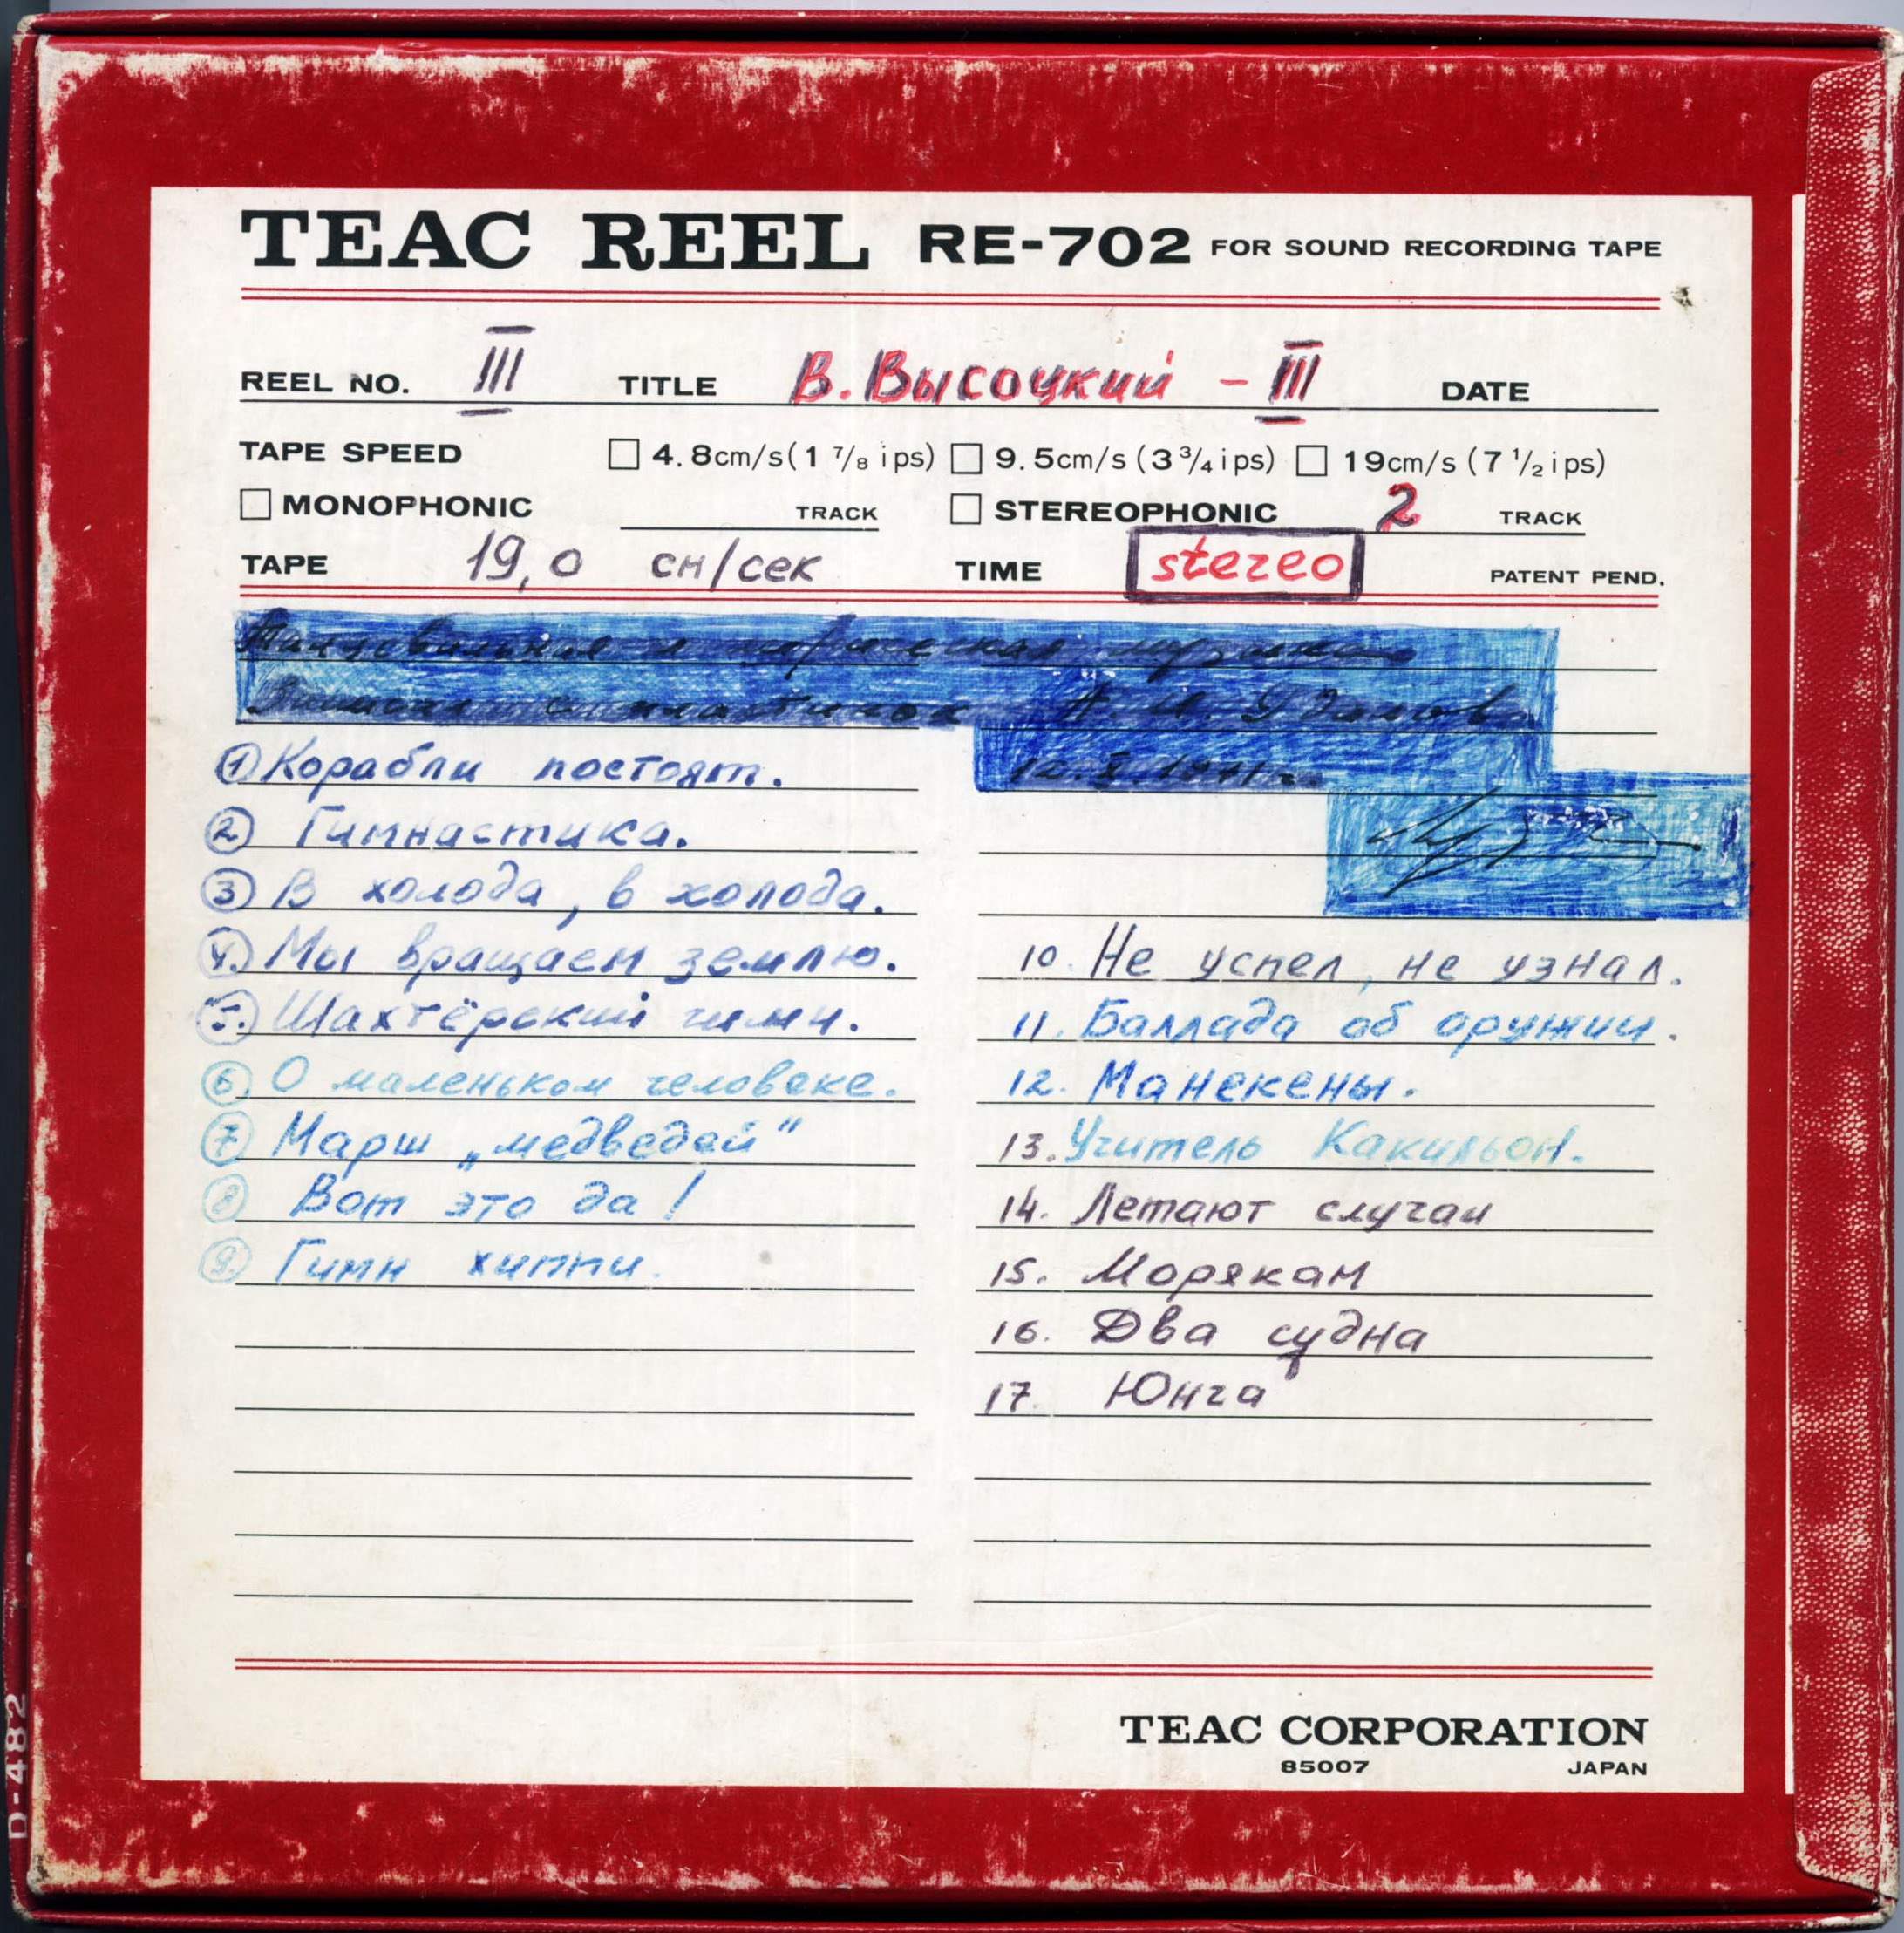 TEAC REEL RE-702 FOR SOUND RECORDING TAPE
REEL NO. III TITLE В. Высоцкий - III DATE
TAPE SPEED 4.8cm/s (1 7/8 ips) 9.5cm/s (3 3/4 ips) 19cm/s (7 1/2 ips)
MONOPHONIC TRACK STEREOPHONIC 2 TRACK
TAPE 19,0 см/сек TIME stereo PATENT PEND.
1 Корабли постоят.
2 Гимнастика.
3 В холода, в холода.
4. Мы вращаем землю.
5. Шахтёрский гимн.
6. О маленьком человеке.
7 Марш „медведей"
8 Вот это да!
9. Гимн хиппи.
10. Не успел, не узнал.
11. Баллада об оружии.
12. Манекены.
13. Учитель Какильон.
14. Летают случаи
15. Морякам
16. Два судна
17. Юнга
TEAC CORPORATION
85007 JAPAN
D-482